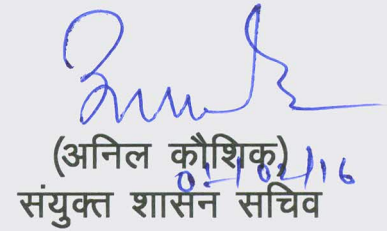 (अनिल कौशिक)
01/02/16
संयुक्त शासन सचिव